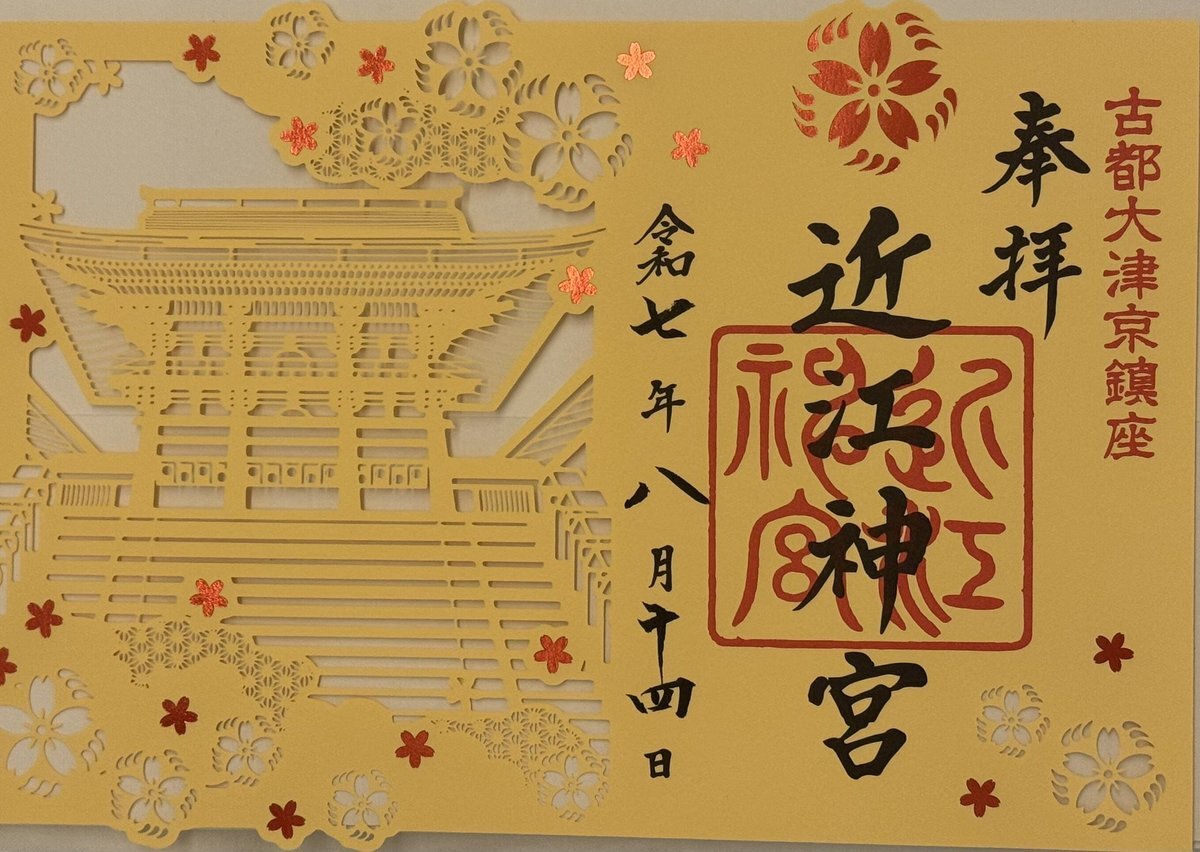 古都大津京鎮座
奉拝
近江神宮
近江神宮
令和七年八月十四日